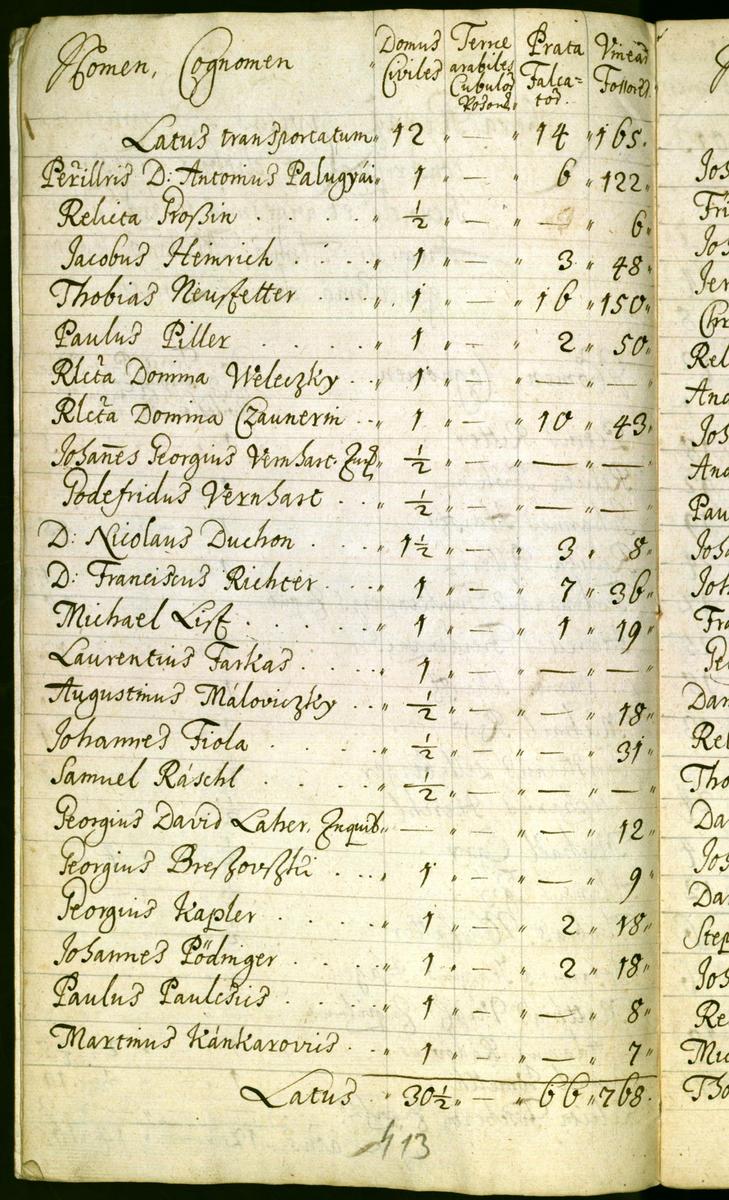 Nomen, Cognomen " Domus Civiles " Terræ arabiles Cubulos Poson: " Prata Falca-tor: Vineæ Fossor:
Latus transportatum " 12 " — " 14 " 165.
Perillris D: Antonius Palugyai " 1 " — " 6 " 122 "
Relicta Proßin . . . . " ½ " — " — " 6 "
Jacobus Heinrich . . . " 1 " — " 3 " 48 "
Thobias Neusfetter . . " 1 " — " 16 " 150 "
Paulus Piller . . . . " 1 " — " 2 " 50 "
Rlcta Domina Weleczky . . " 1 " — " — " — "
Rlcta Domina Czaunerin . . " 1 " — " 10 " 43 "
Johañes Georgius Vernhart " ½ " — " — " — "
Godefridus Vernhart . . " ½ " — " — " — "
D: Nicolaus Duchon . . . " 1½ " — " 3 " 8 "
D: Franciscus Richter . . . " 1 " — " 7 " 36 "
Michael List . . . . " 1 " — " 1 " 19 "
Laurentius Farkas . . . " 1 " — " — " — "
Augustinus Máloviczky . . " ½ " — " — " 18 "
Johannes Fiola . . . . " ½ " — " — " 31 "
Samuel Ráschl . . . . " ½ " — " — " — "
Georgius David Laher, Inquib " — " — " — " 12 "
Georgius Breßovßki . . . " 1 " — " — " 9 "
Georgius Kapler . . . . " 1 " — " 2 " 18 "
Johannes Pödinger . . . " 1 " — " 2 " 18 "
Paulus Paulesics . . . . " 1 " — " — " 8 "
Martinus Kánkarovics . . " 1 " — " — " 7 "
Latus " 30½ " — " 66 " 768.
413
Jos
Fri
Jos
Jer
Chr
Rel
And
Joh
And
Pau
Joh
Joh
Fra
Dan
Rel
Tho
Da
Jos
Dan
Step
Jos
Re
Mic
Tho